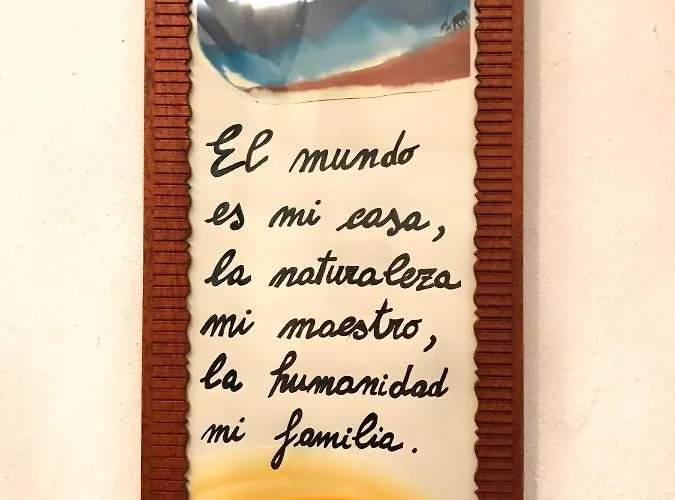 El mundo
es mi casa,
la naturaleza
mi maestro,
la humanidad
mi familia.